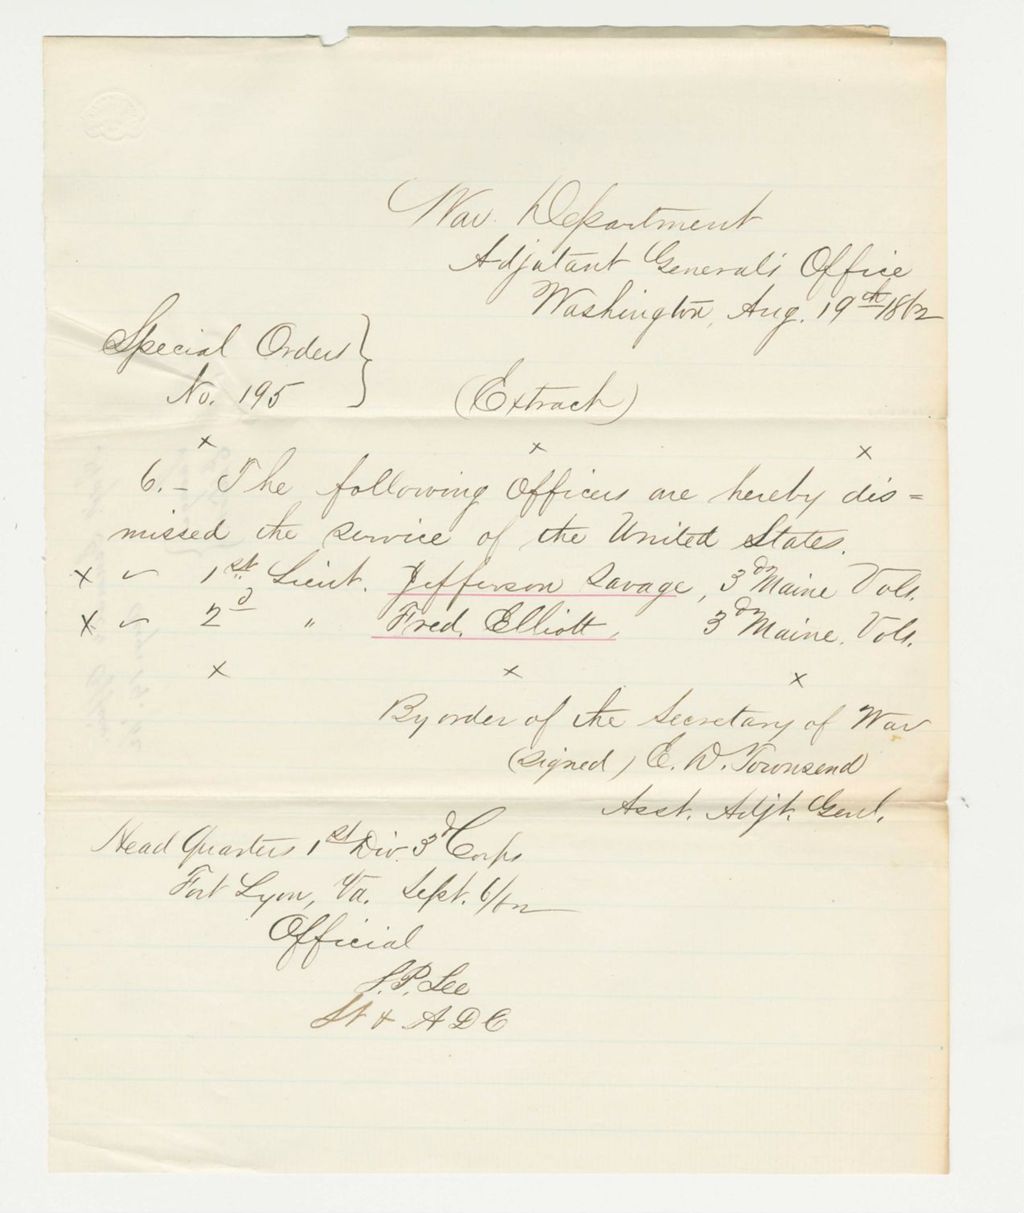 War Department
Adjutant General's Office
Washington, Aug. 19th 1862
Special Orders }
No. 195
(Extract)
x x x
6. - The following Officers are hereby dis=
missed the service of the United States.
x ✓ 1st Lieut. Jefferson Savage, 3d Maine Vols.
x ✓ 2d " Fred. Elliott, 3d Maine. Vols.
x x x
By order of the Secretary of War
(signed) E. D. Townsend
Asst. Adjt. Genl.
Head Quarters 1st Div. 3d Corps
Fort Lyon, Va. Sept. 6/62
Official
S. P. Lee
Lt & A D C